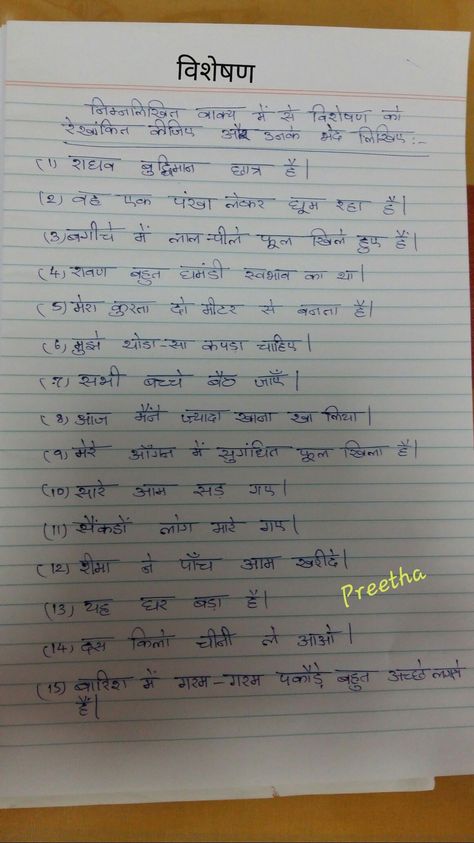 विशेषण
निम्नलिखित वाक्य में से विशेषण को
रेखांकित कीजिए और उनके भेद लिखिए:-
(1) राघव बुद्धिमान छात्र है।
(2) वह एक पंखा लेकर घूम रहा है।
(3) बगीचे में लाल-पीले फूल खिले हुए हैं।
(4) रावण बहुत घमंडी स्वभाव का था।
(5) मेरा कुरता दो मीटर से बनता है।
(6) मुझे थोडा-सा कपडा चाहिए।
(7) सभी बच्चे बैठ जाएँ।
(8) आज मैंने ज्यादा खाना खा लिया।
(9) मेरे आँगन में सुगंधित फूल खिला है।
(10) सारे आम सड़ गए।
(11) सैंकडों लोग मारे गए।
(12) रीमा ने पाँच आम खरीदे।
(13) यह घर बडा है।
Preetha
(14) दस किलो चीनी ले आओ।
(15) बारिश में गरम-गरम पकौड़े बहुत अच्छे लगते
हैं।